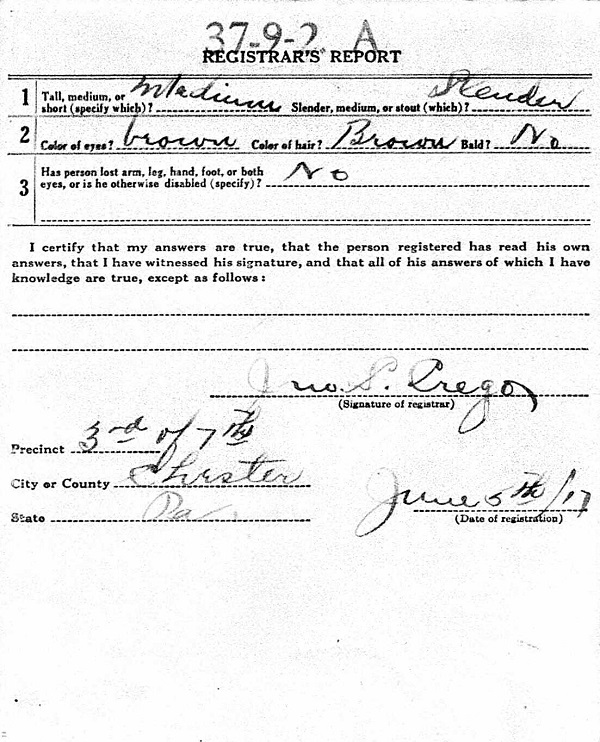 37-9-2 A
REGISTRAR'S REPORT
1 Tall, medium, or short (specify which)? Medium Slender, medium, or stout (which)? Slender
2 Color of eyes? brown Color of hair? Brown Bald? No
3 Has person lost arm, leg, hand, foot, or both
eyes, or is he otherwise disabled (specify)? No
I certify that my answers are true, that the person registered has read his own
answers, that I have witnessed his signature, and that all of his answers of which I have
knowledge are true, except as follows:
Jno. S.
(Signature of registrar)
Precinct 3rd of 7th
City or County Chester
State Pa
June 5th/17
(Date of registration)